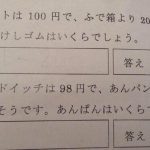 トは 100 円で、ふで箱より 20
けしゴムはいくらでしょう。
答え
ドイッチは 98 円で、あんパン
そうです。あんぱんはいくらで
答え